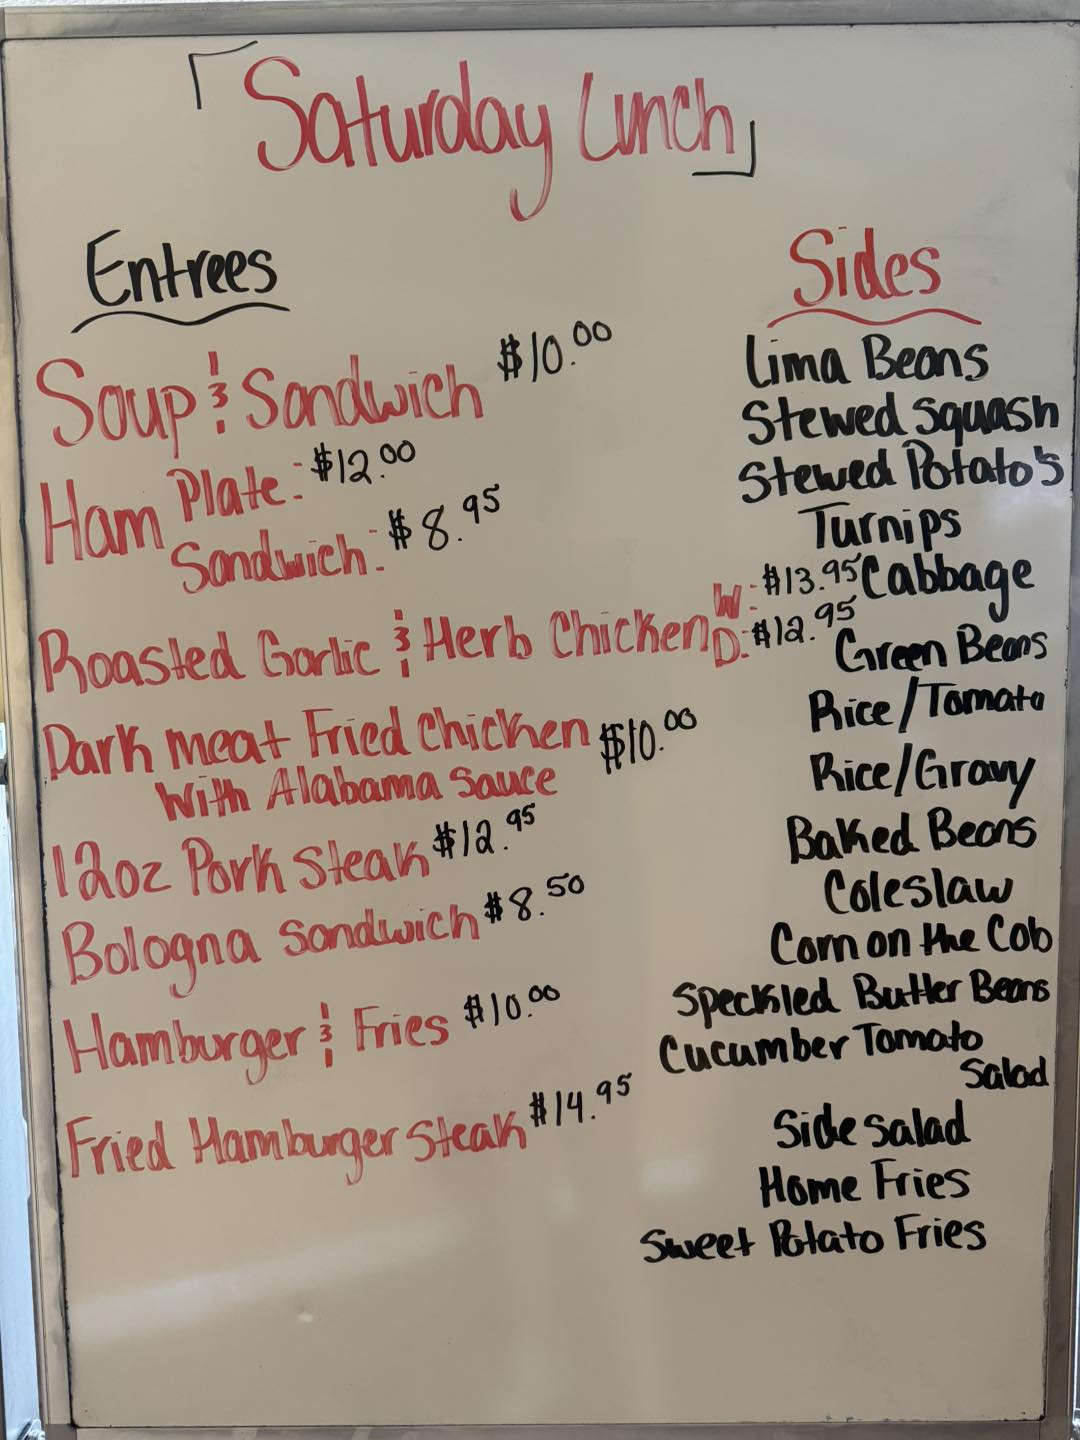 Saturday Lunch
Entrees
Soup & Sandwich $10.00
Ham Plate: $12.00
Sandwich: $8.95
Roasted Garlic & Herb Chicken W: $13.95
D: $12.95
Dark meat Fried Chicken $10.00
With Alabama Sauce
12oz Pork Steak $12.95
Bologna Sandwich $8.50
Hamburger & Fries $10.00
Fried Hamburger Steak $14.95
Sides
Lima Beans
Stewed Squash
Stewed Potato's
Turnips
Cabbage
Green Beans
Rice/Tomato
Rice/Gravy
Baked Beans
Coleslaw
Corn on the Cob
Speckled Butter Beans
Cucumber Tomato
Salad
Side Salad
Home Fries
Sweet Potato Fries